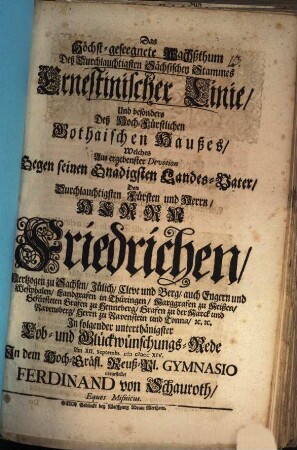 Das
Höchst-geseegnete Wachsthum
Deß Durchlauchtigsten Sächsischen Stammes
Ernestinischer Linie/
Und besonders
Deß Hoch-Fürstlichen
Gothaischen Haußes/
Welches
Aus ergebenster Devotion
Gegen seinen Gnädigsten Landes-Vater/
Den
Durchlauchtigsten Fürsten und Herrn/
HERRN
Friedrichen/
Hertzogen zu Sachsen/ Jülich/ Cleve und Berg/ auch Engern und
Westphalen/ Landgrafen in Thüringen/ Marggrafen zu Meißen/
Gefürsteten Grafen zu Henneberg/ Grafen zu der Marck und
Ravensberg/ Herrn zu Ravenstein und Tonna/ &c. &c.
In folgender unterthänigster
Lob- und Glückwünschungs-Rede
Den XII. Septembr. XIV.
In dem Hoch-Gräfl. Reuß-Pl. GYMNASIO
vorgestellet
FERDINAND von Schauroth/
Eques Misnicus.